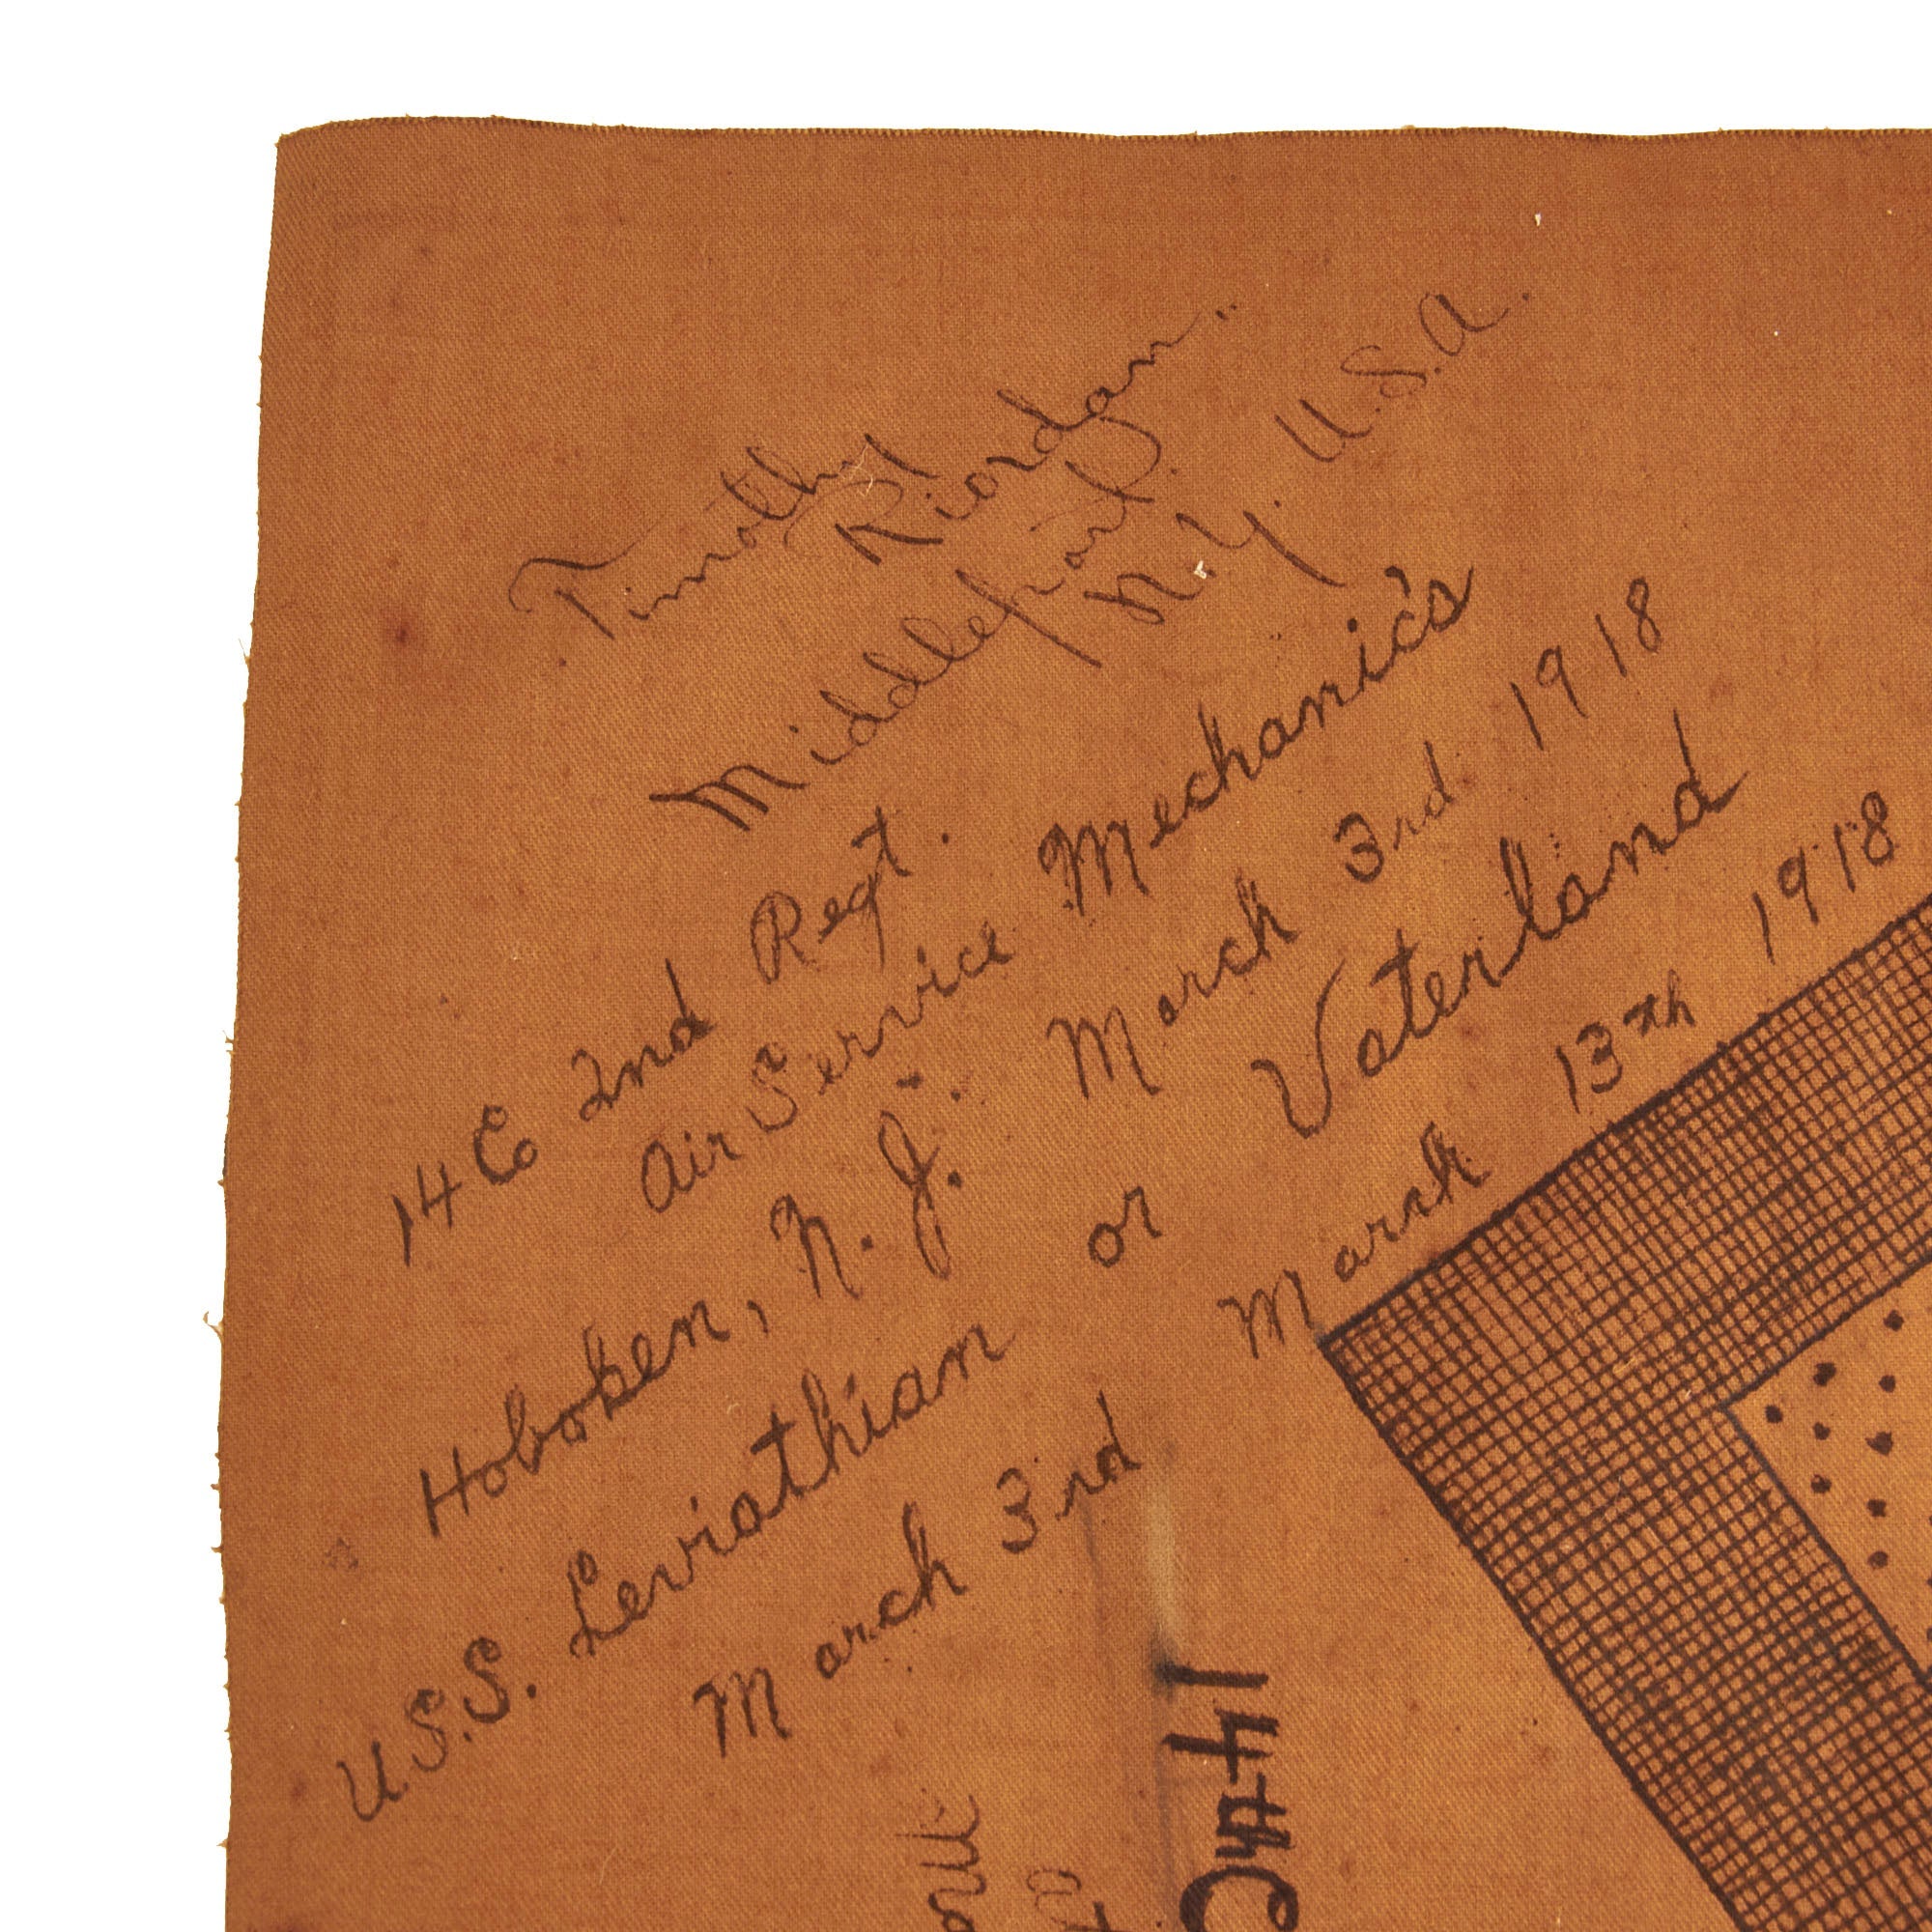 Timothy
Riordan"
Middleport
N.Y. U.S.A.
14 Co 2nd Regt.
Air Service Mechanic's
Hoboken, N.J. March 3rd 1918
U.S.S. Leviathian or Vaterland
March 3rd March 13th 1918
14th C